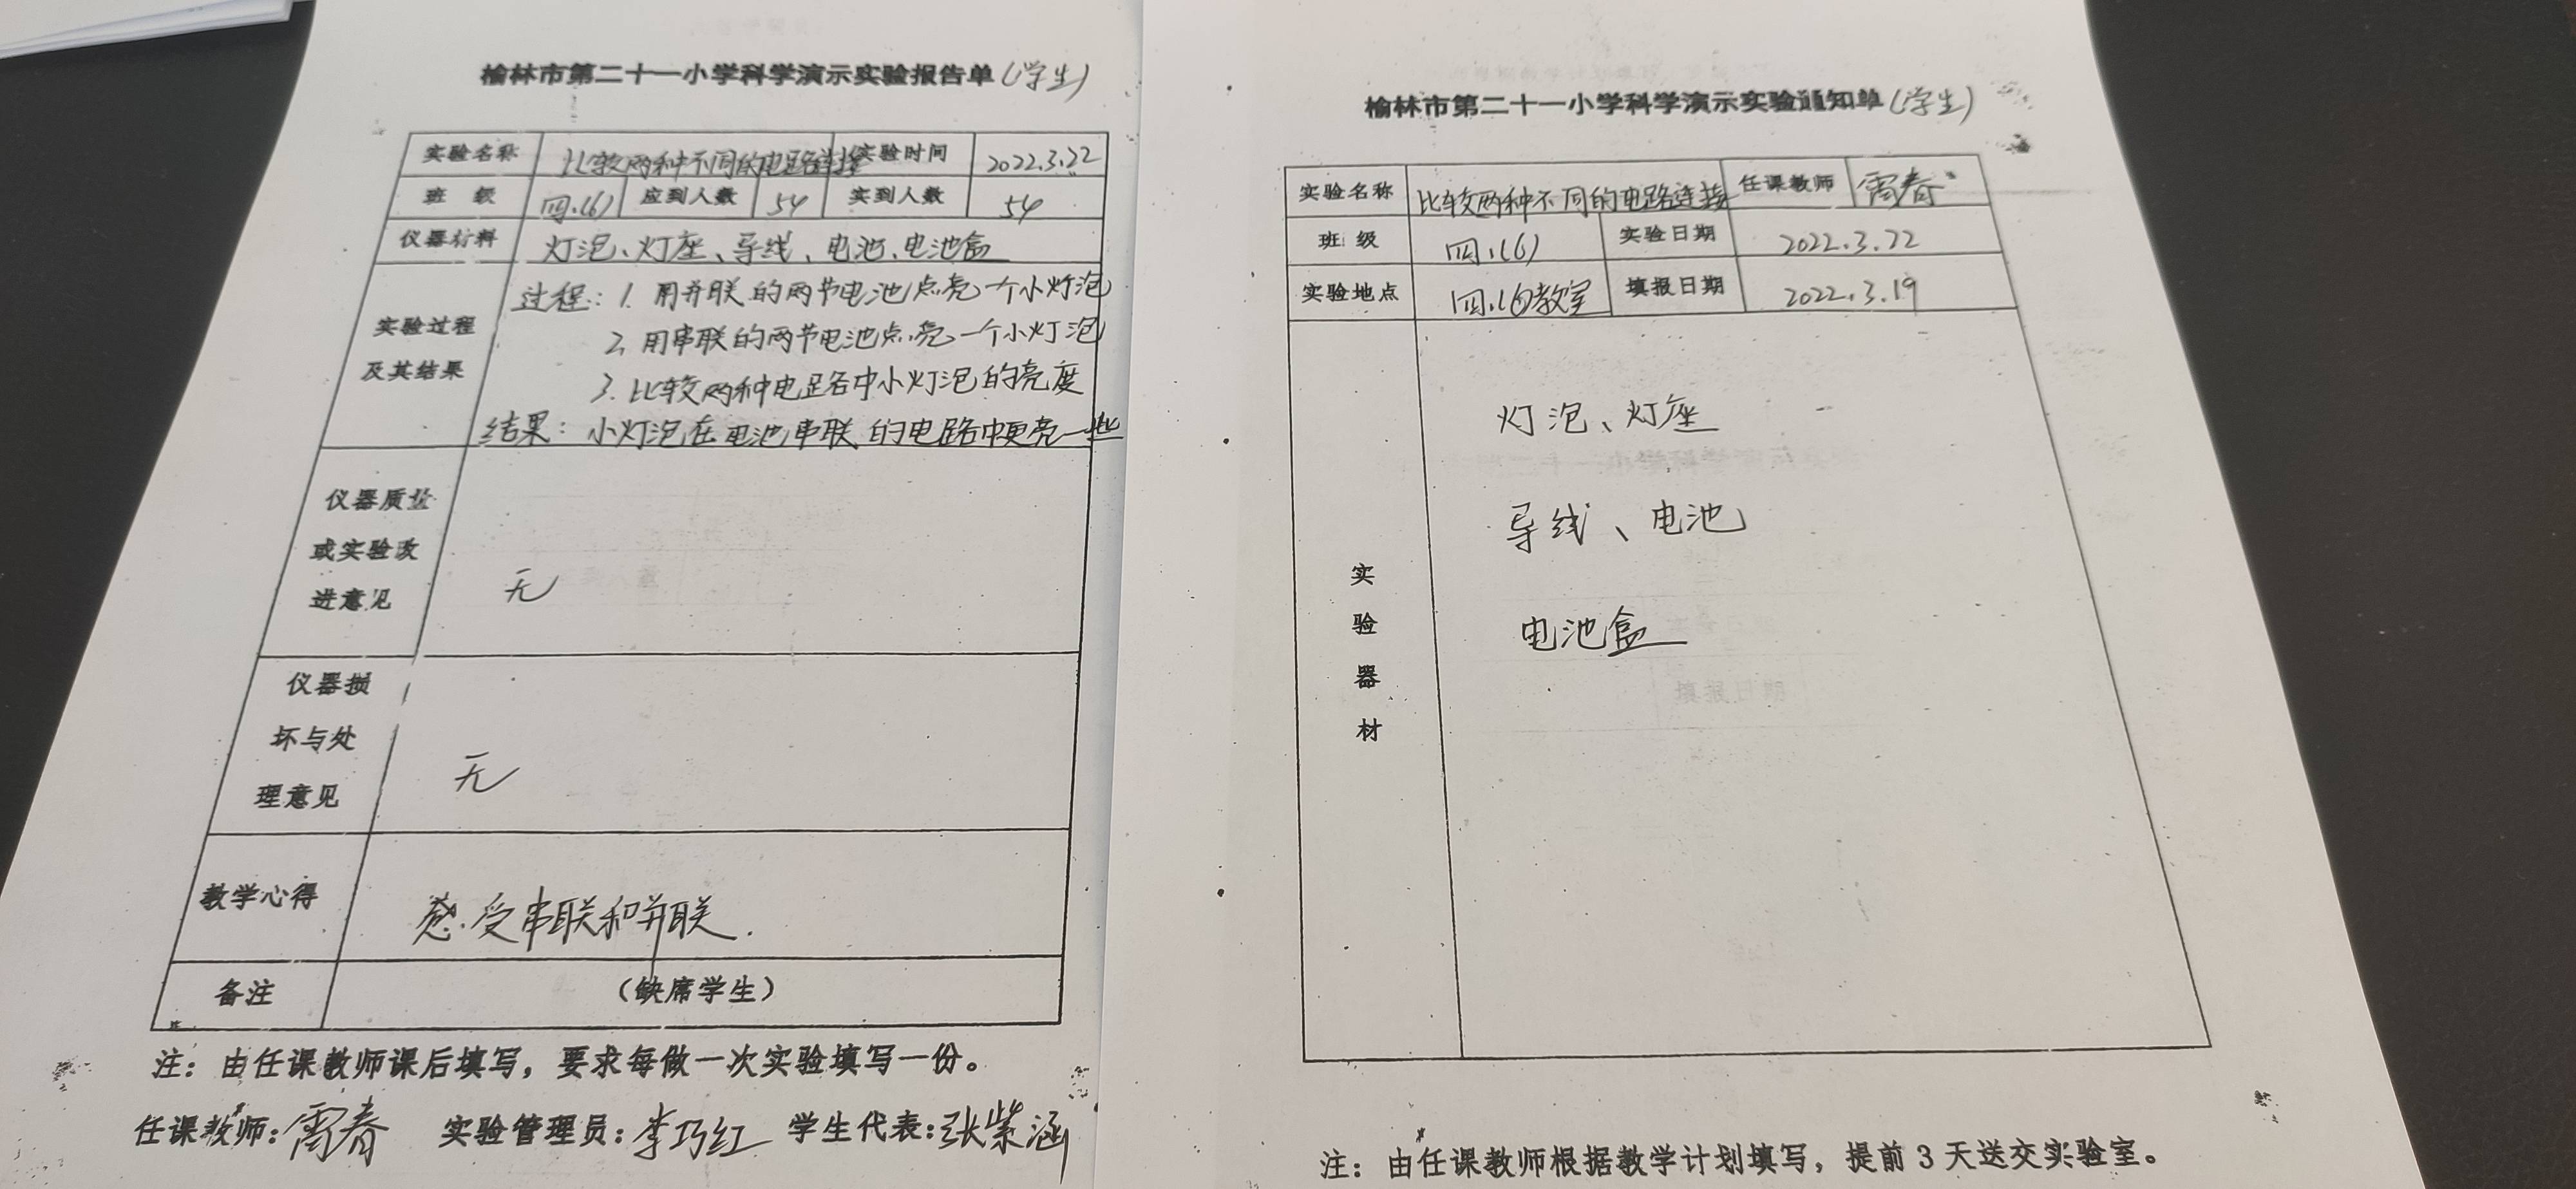 榆林市第二十一小学科学演示实验报告单（学生）
实验名称 比较两种不同的电路连接 实验时间 2022.3.22
班 级 四.(6) 应到人数 54 实到人数 54
仪器材料 灯泡、灯座、导线、电池、电池盒
实验过程
及其结果
过程：1. 用并联的两节电池点亮一个小灯泡
2. 用串联的两节电池点亮一个小灯泡
3. 比较两种电路中小灯泡的亮度
结果：小灯泡在电池串联的电路中更亮一些
仪器质量
或实验改
进意见
无
仪器损
坏与处
理意见
无
教学心得 感受串联和并联.
备注 （缺席学生）
注：由任课教师课后填写，要求每做一次实验填写一份。
任课教师：雷春 实验管理员：李巧红 学生代表：张紫涵
榆林市第二十一小学科学演示实验通知单（学生）
实验名称 比较两种不同的电路连接 任课教师 雷春
班 级 四.(6) 实验日期 2022.3.22
实验地点 四.(6)教室 填报日期 2022.3.19
实
验
器
材
灯泡、灯座
导线、电池
电池盒
注：由任课教师根据教学计划填写，提前 3 天送交实验室。